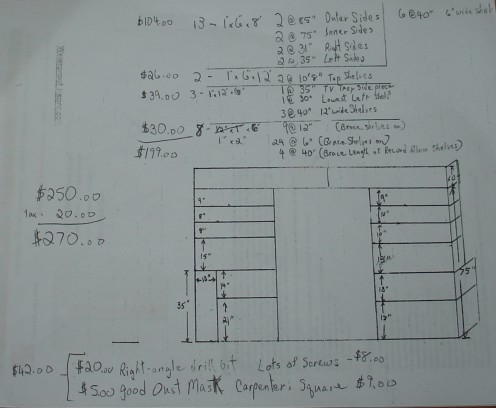 $104.00 13 - 1"x6"x8' 2 @ 85" Outer Sides 6 @ 40" 6" wide Shelves
2 @ 75" Inner Sides
2 @ 31" Right Sides
2 @ 35" Left Sides
$26.00 2 - 1"x6"x12' 2 @ 10'8" Top Shelves
$39.00 3 - 1"x12"x8' 1 @ 35" TV Tray Side piece
1 @ 30" Lowest Left Shelf
3 @ 40" 12" wide Shelves
$30.00 8 - 1"x2" 9 @ 12" (Brace Shelves on)
24 @ 6" (Brace Shelves on)
$199.00 4 @ 40" (Brace Length of Record Album Shelves)
$250.00
Tax. 20.00
$270.00
9"
8"
8"
15"
13"
14"
35"
21"
9"
10"
10"
13"
75"
$42.00 - $20.00 Right-angle drill bit Lots of Screws - $8.00
$5.00 good Dust Mask Carpenter's Square $9.00